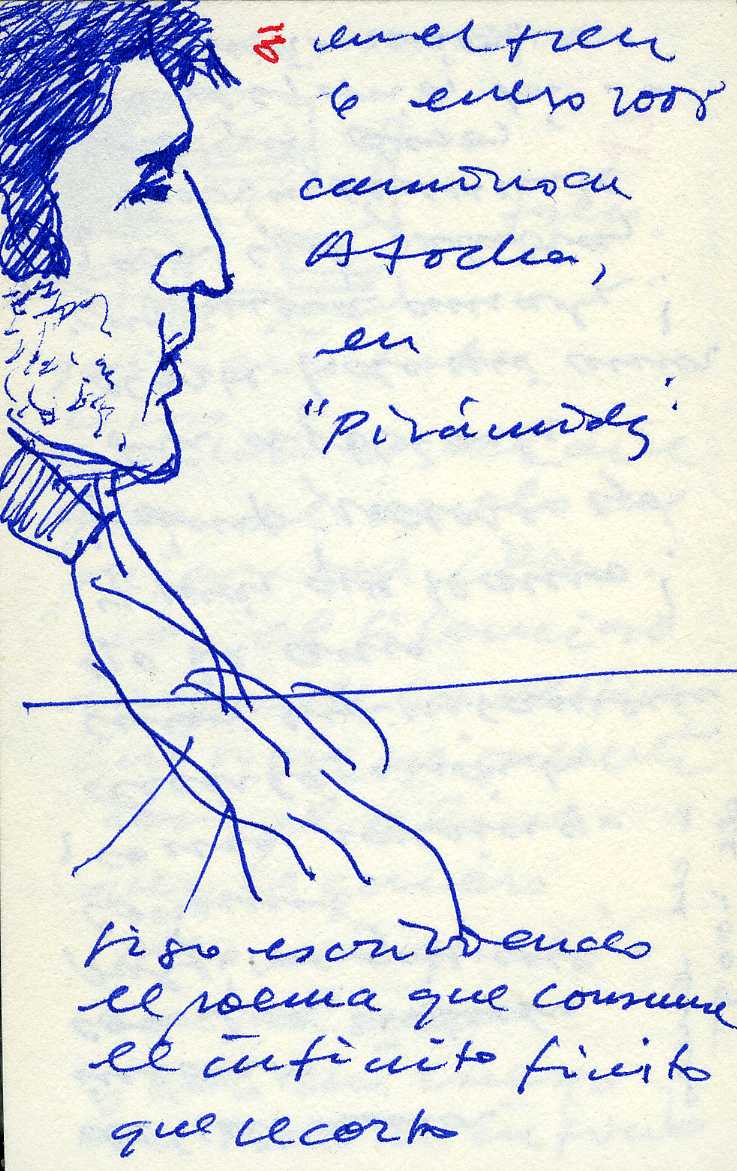 en el tren
6 enero 2008
camino de
Atocha,
en
"Pirámides"
sigo escribiendo
el poema que consume
el infinito finito
que recorto